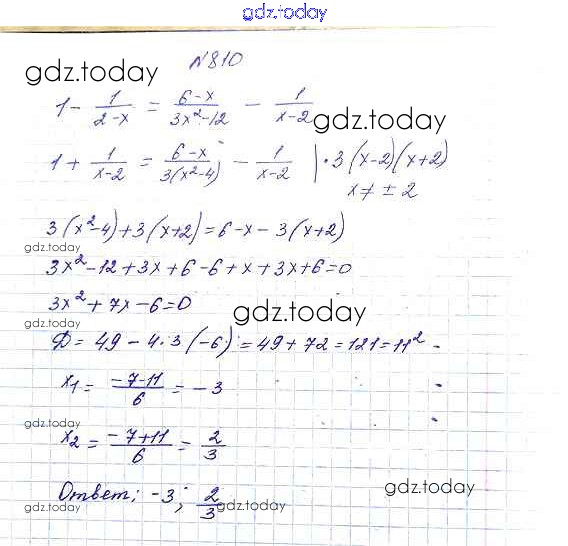 gdz.today
№810
gdz.today
1 - 1/(2-x) = (6-x)/(3x²-12) - 1/(x-2)
gdz.today
1 + 1/(x-2) = (6-x)/(3(x²-4)) - 1/(x-2) | ·3(x-2)(x+2)
gdz.today
x ≠ ± 2
3(x²-4)+3(x+2)=6-x-3(x+2)
gdz.today
3x²-12+3x+6-6+x+3x+6=0
3x²+7x-6=0
gdz.today
gdz.today
D = 49 - 4·3(-6) = 49+72=121=11²
x₁ = (-7-11)/6 = -3
gdz.today
x₂ = (-7+11)/6 = 2/3
Ответ: -3; 2/3
gdz.today
gdz.today
gdz.today